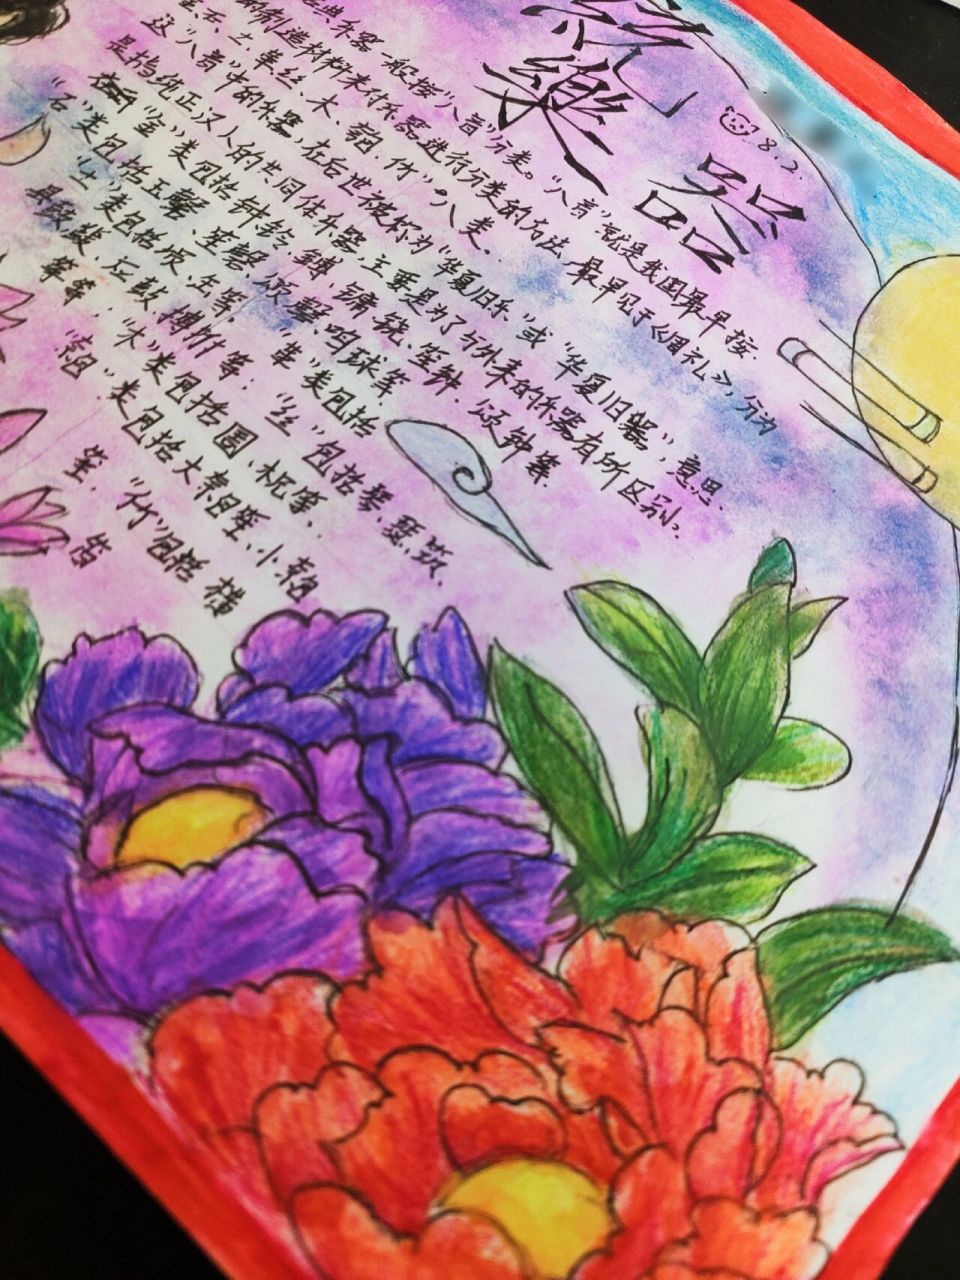 樂器
8.2.
典乐器一般按"八音"分类。"八音"就是我国最早按
的制造材料来对乐器进行分类的方法,最早见于《周礼》,分为
石、土、革、丝、木、匏、竹"八类.
这"八音"中的乐器,在后世被称为"华夏旧乐"或"华夏旧器",意思
是指纯正汉人的世间传乐器,主要是为了与外来的乐器有所区别。
"金"类包括钟、铃、镈、镛、铙、笙钟、颂钟等
"石"类包括玉磬、笙磬、颂磬、鸣球等
"土"类包括埙、缶等,"革"类包括
县鼓、鼓、应鼓、搏拊等;"丝"包括琴、瑟、筑、
等等,"木"类包括圄、柷等、
"匏"类包括大匏笙、小匏
笙,"竹"包括横
笛